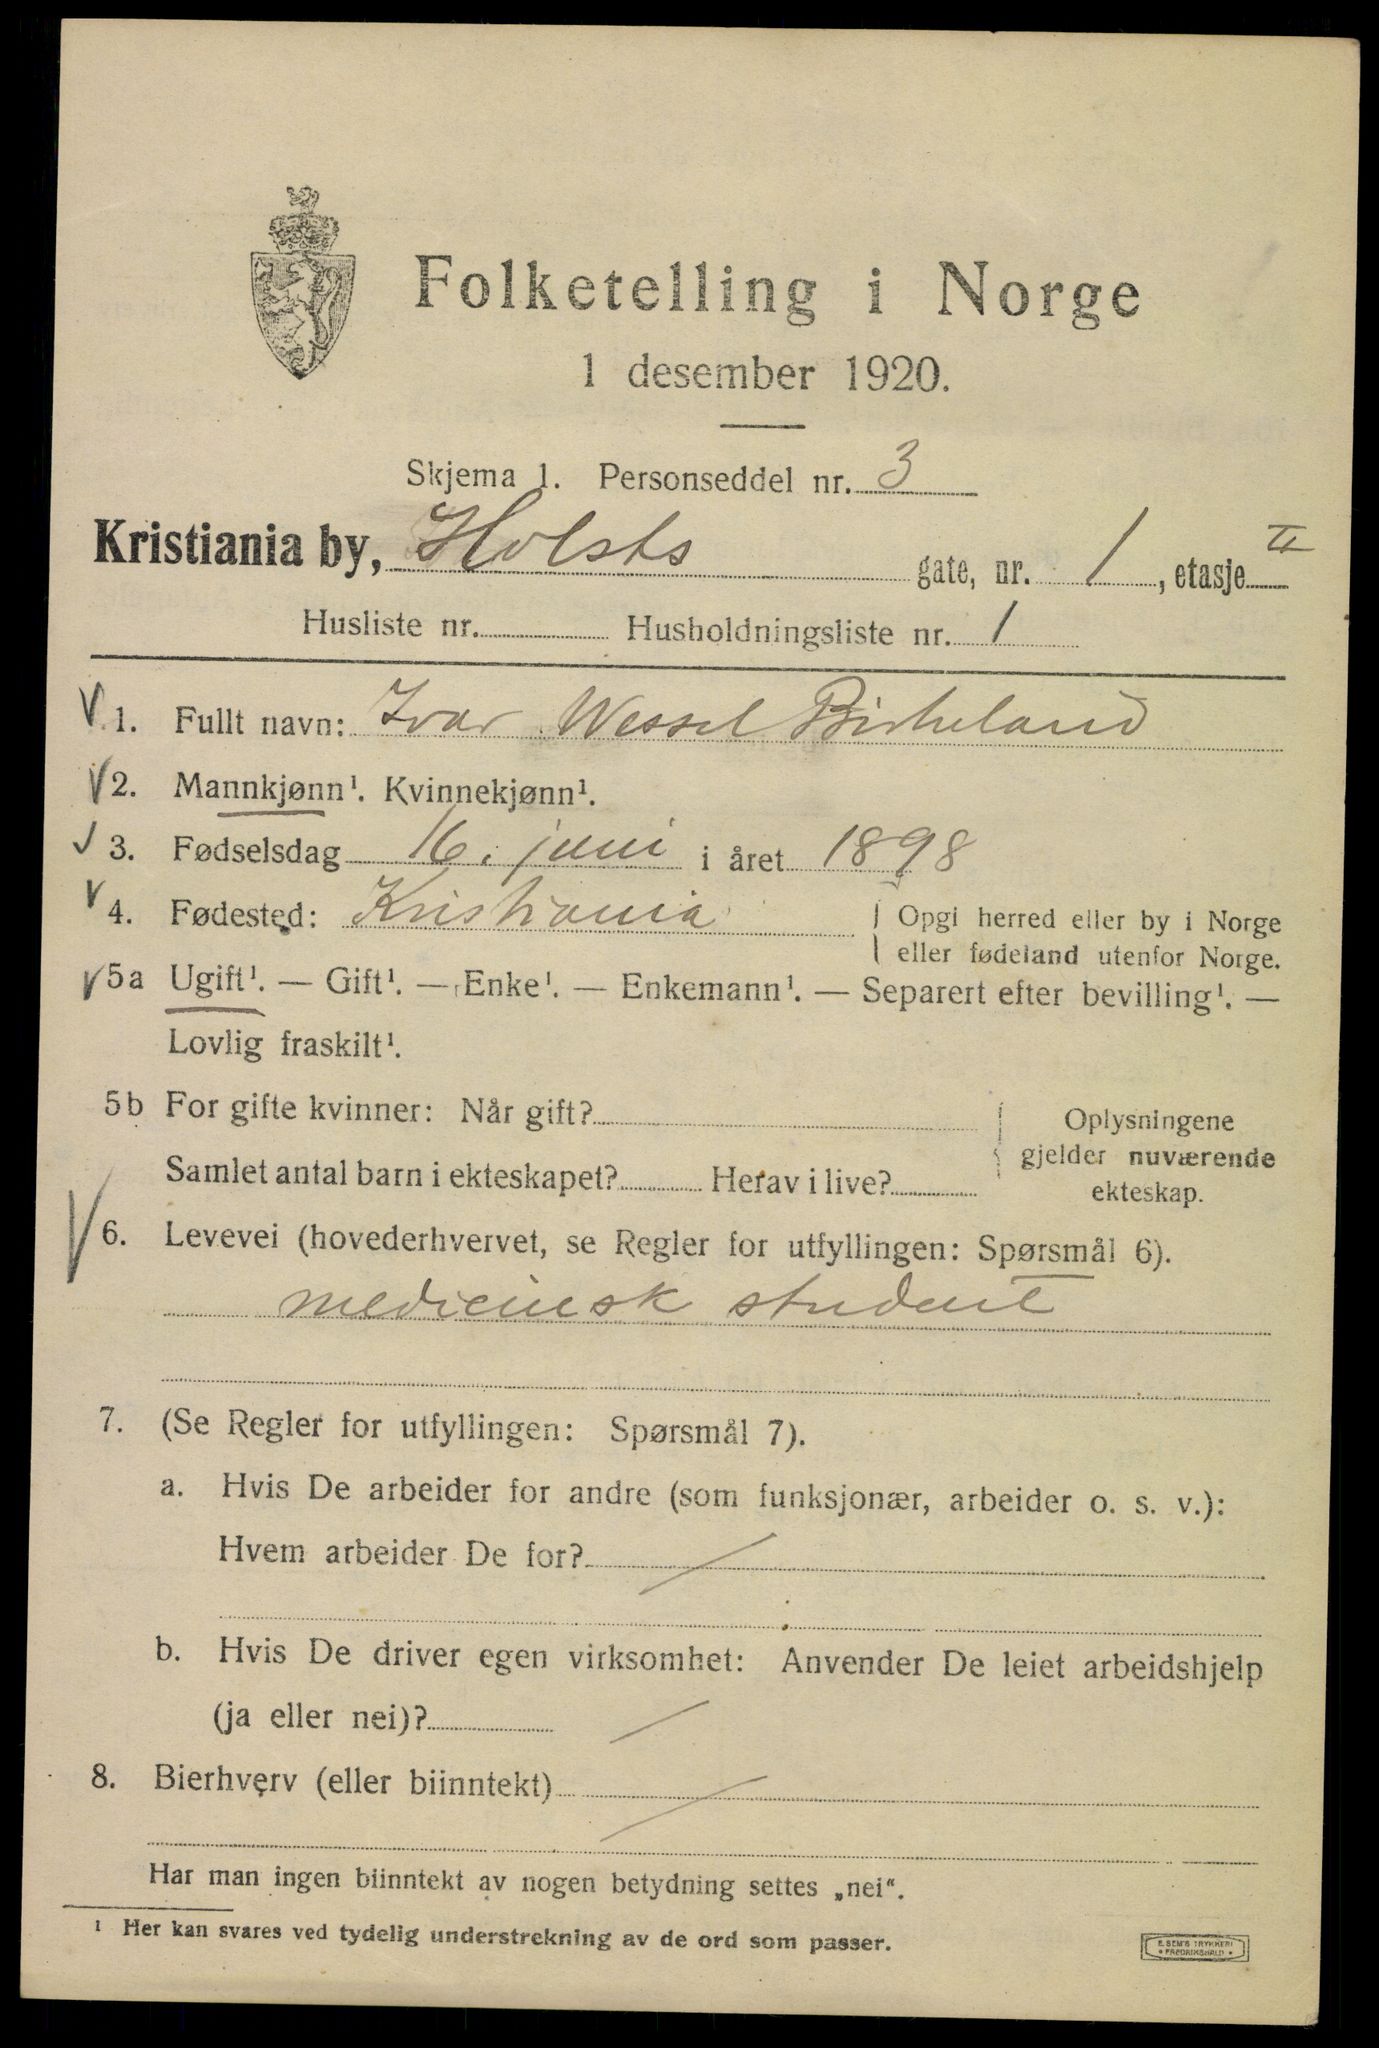 Folketelling i Norge
1 desember 1920.
Skjema 1. Personseddel nr. 3
Kristiania by, Holsts gate, nr. 1, etasje II
Husliste nr. Husholdningsliste nr. 1
V 1. Fullt navn: Ivar Wessel Birkeland
V 2. Mannkjønn¹. Kvinnekjønn¹.
V 3. Fødselsdag 16. juni i året 1898
V 4. Fødested: Kristiania Opgi herred eller by i Norge
eller fødeland utenfor Norge.
V 5a Ugift¹. — Gift¹. — Enke¹. — Enkemann¹. — Separert efter bevilling¹. —
Lovlig fraskilt¹.
5b For gifte kvinner: Når gift? Oplysningene
gjelder nuværende
Samlet antal barn i ekteskapet? Herav i live? ekteskap.
V 6. Levevei (hovederhvervet, se Regler for utfyllingen: Spørsmål 6).
medicinsk student
7. (Se Regler for utfyllingen: Spørsmål 7).
a. Hvis De arbeider for andre (som funksjonær, arbeider o. s. v.):
Hvem arbeider De for? /
b. Hvis De driver egen virksomhet: Anvender De leiet arbeidshjelp
(ja eller nei)? /
8. Bierhverv (eller biinntekt) /
Har man ingen biinntekt av nogen betydning settes „nei“.
¹ Her kan svares ved tydelig understrekning av de ord som passer.
E. SEM'S TRYKKERI
• FREDRIKSHALD •